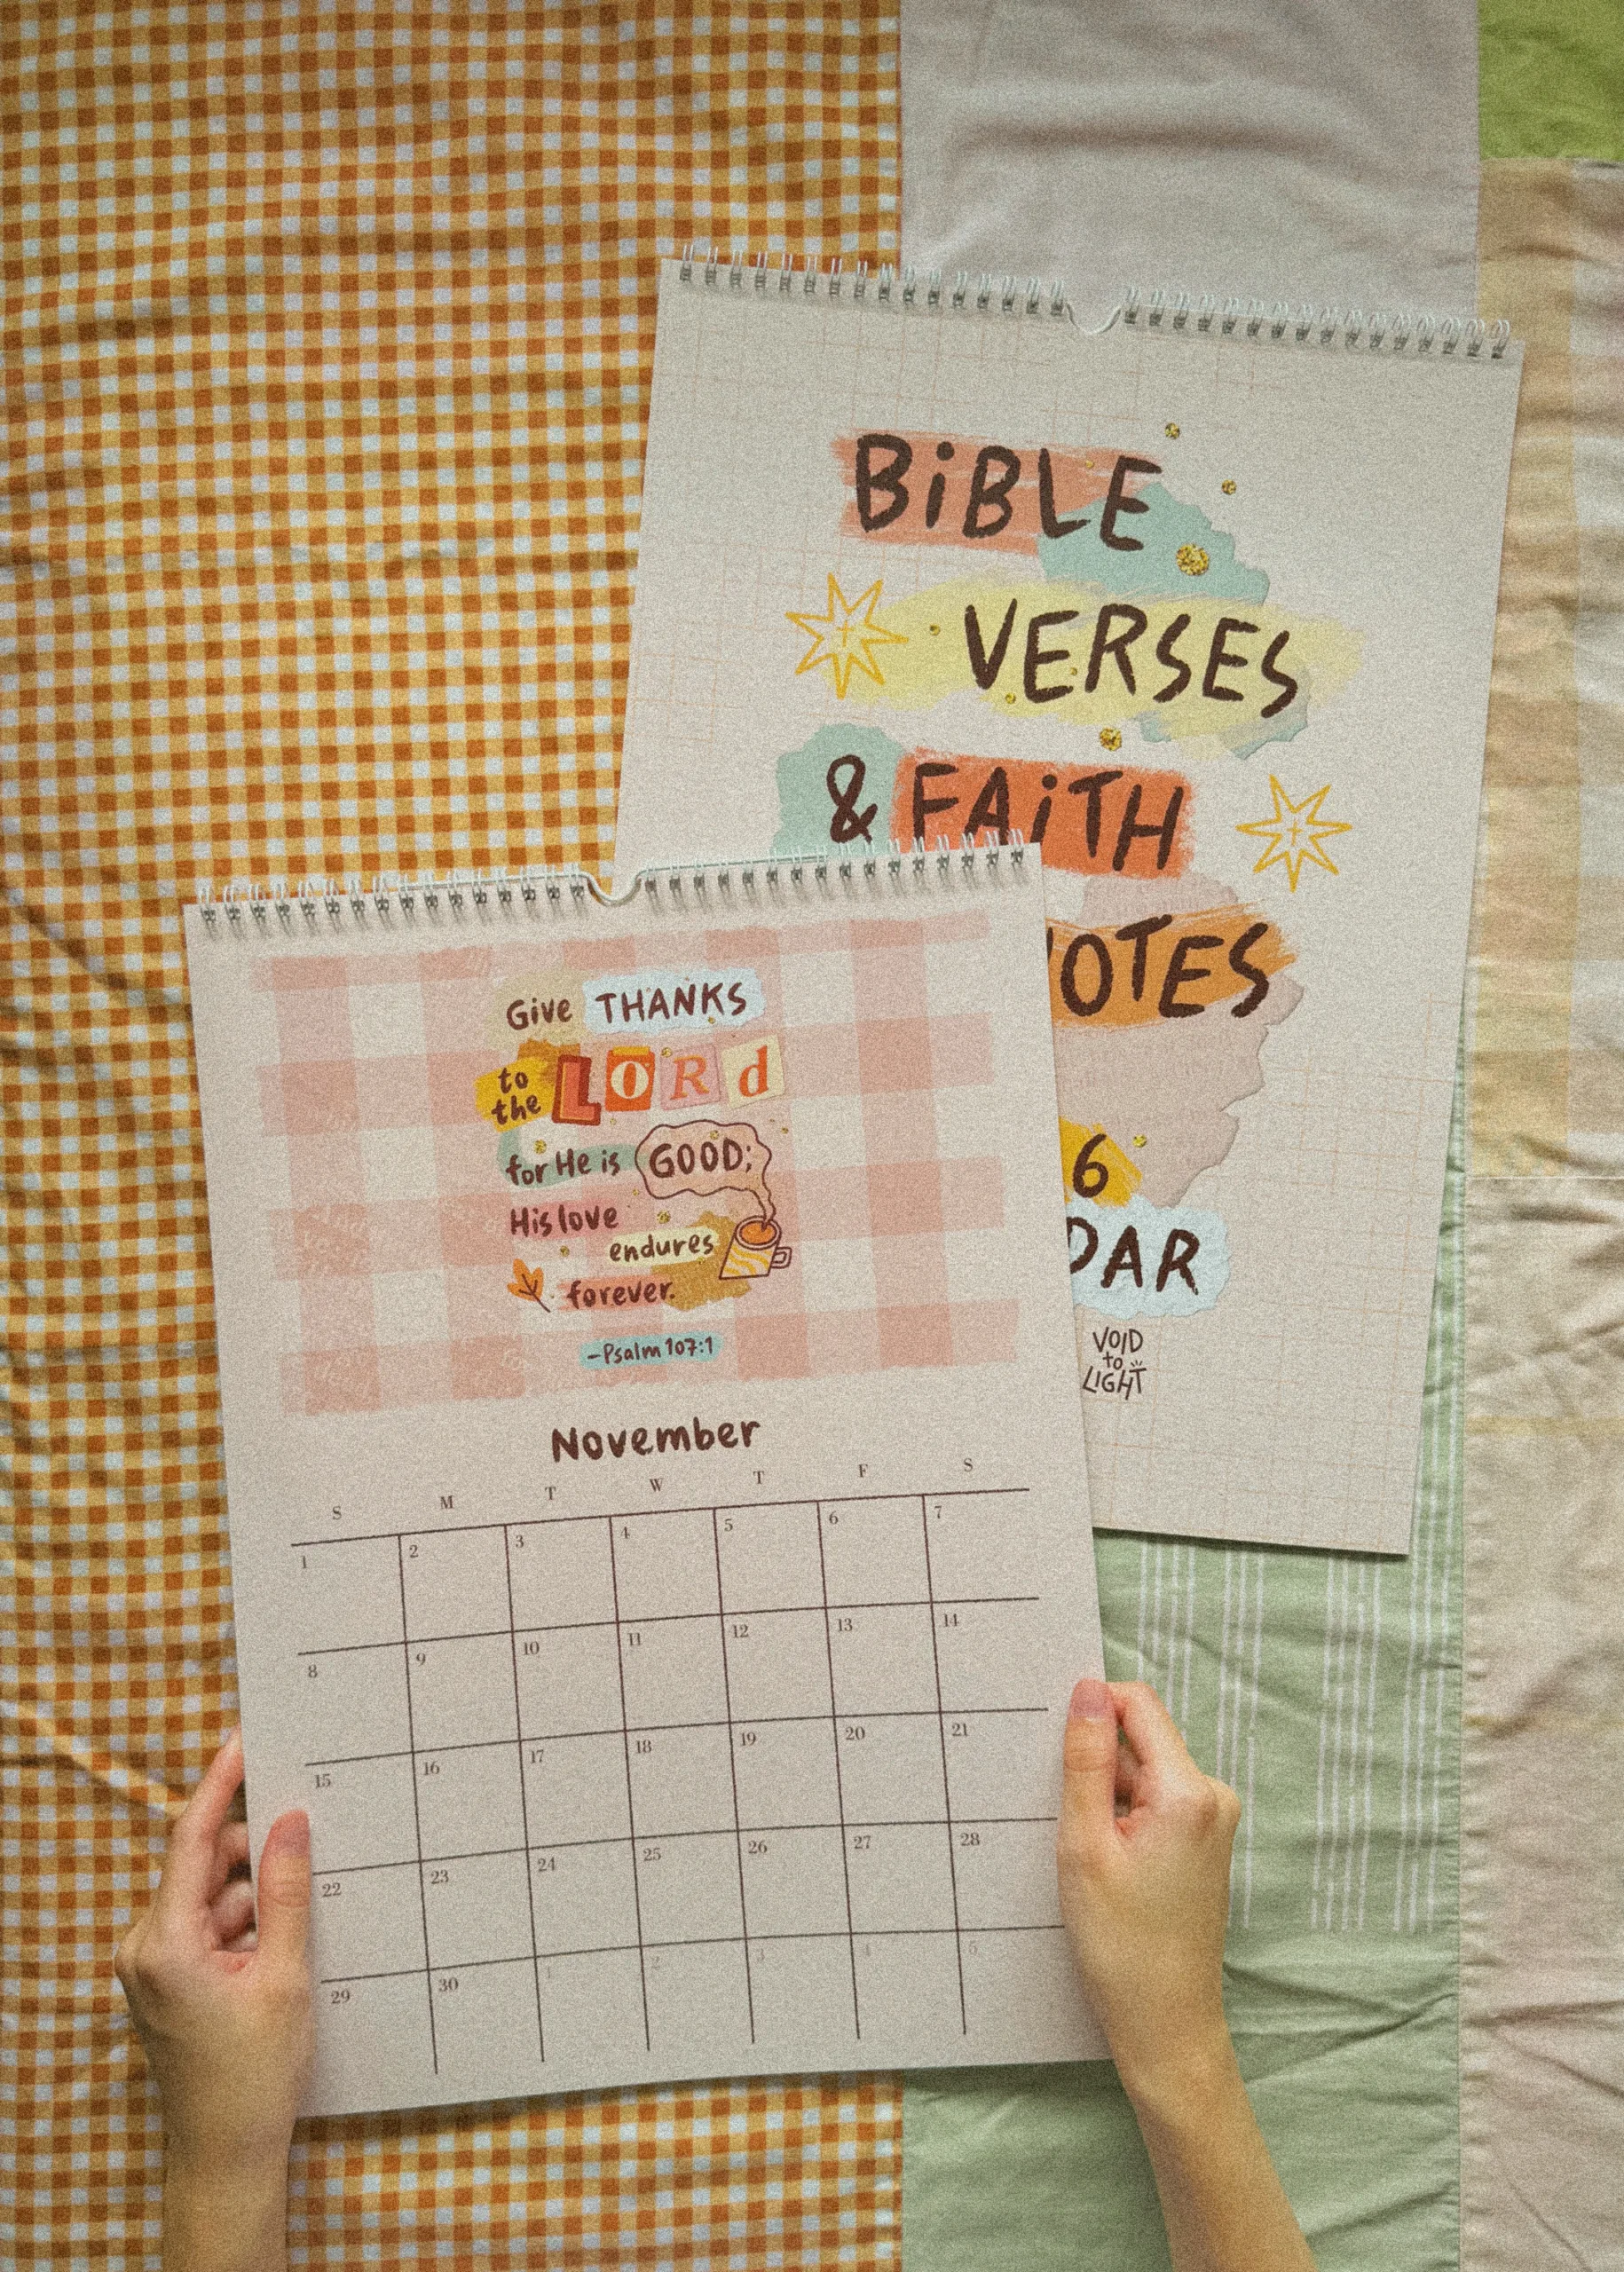 BiBLE
VERSES
& FAiTH
OTES
6
DAR
VOID
to
LIGHT
Give THANKS
to the LORd
for He is GOOD;
His love
endures
forever.
–Psalm 107:1
November
S M T W T F S
1 2 3 4 5 6 7
8 9 10 11 12 13 14
15 16 17 18 19 20 21
22 23 24 25 26 27 28
29 30 1 2 3 4 5